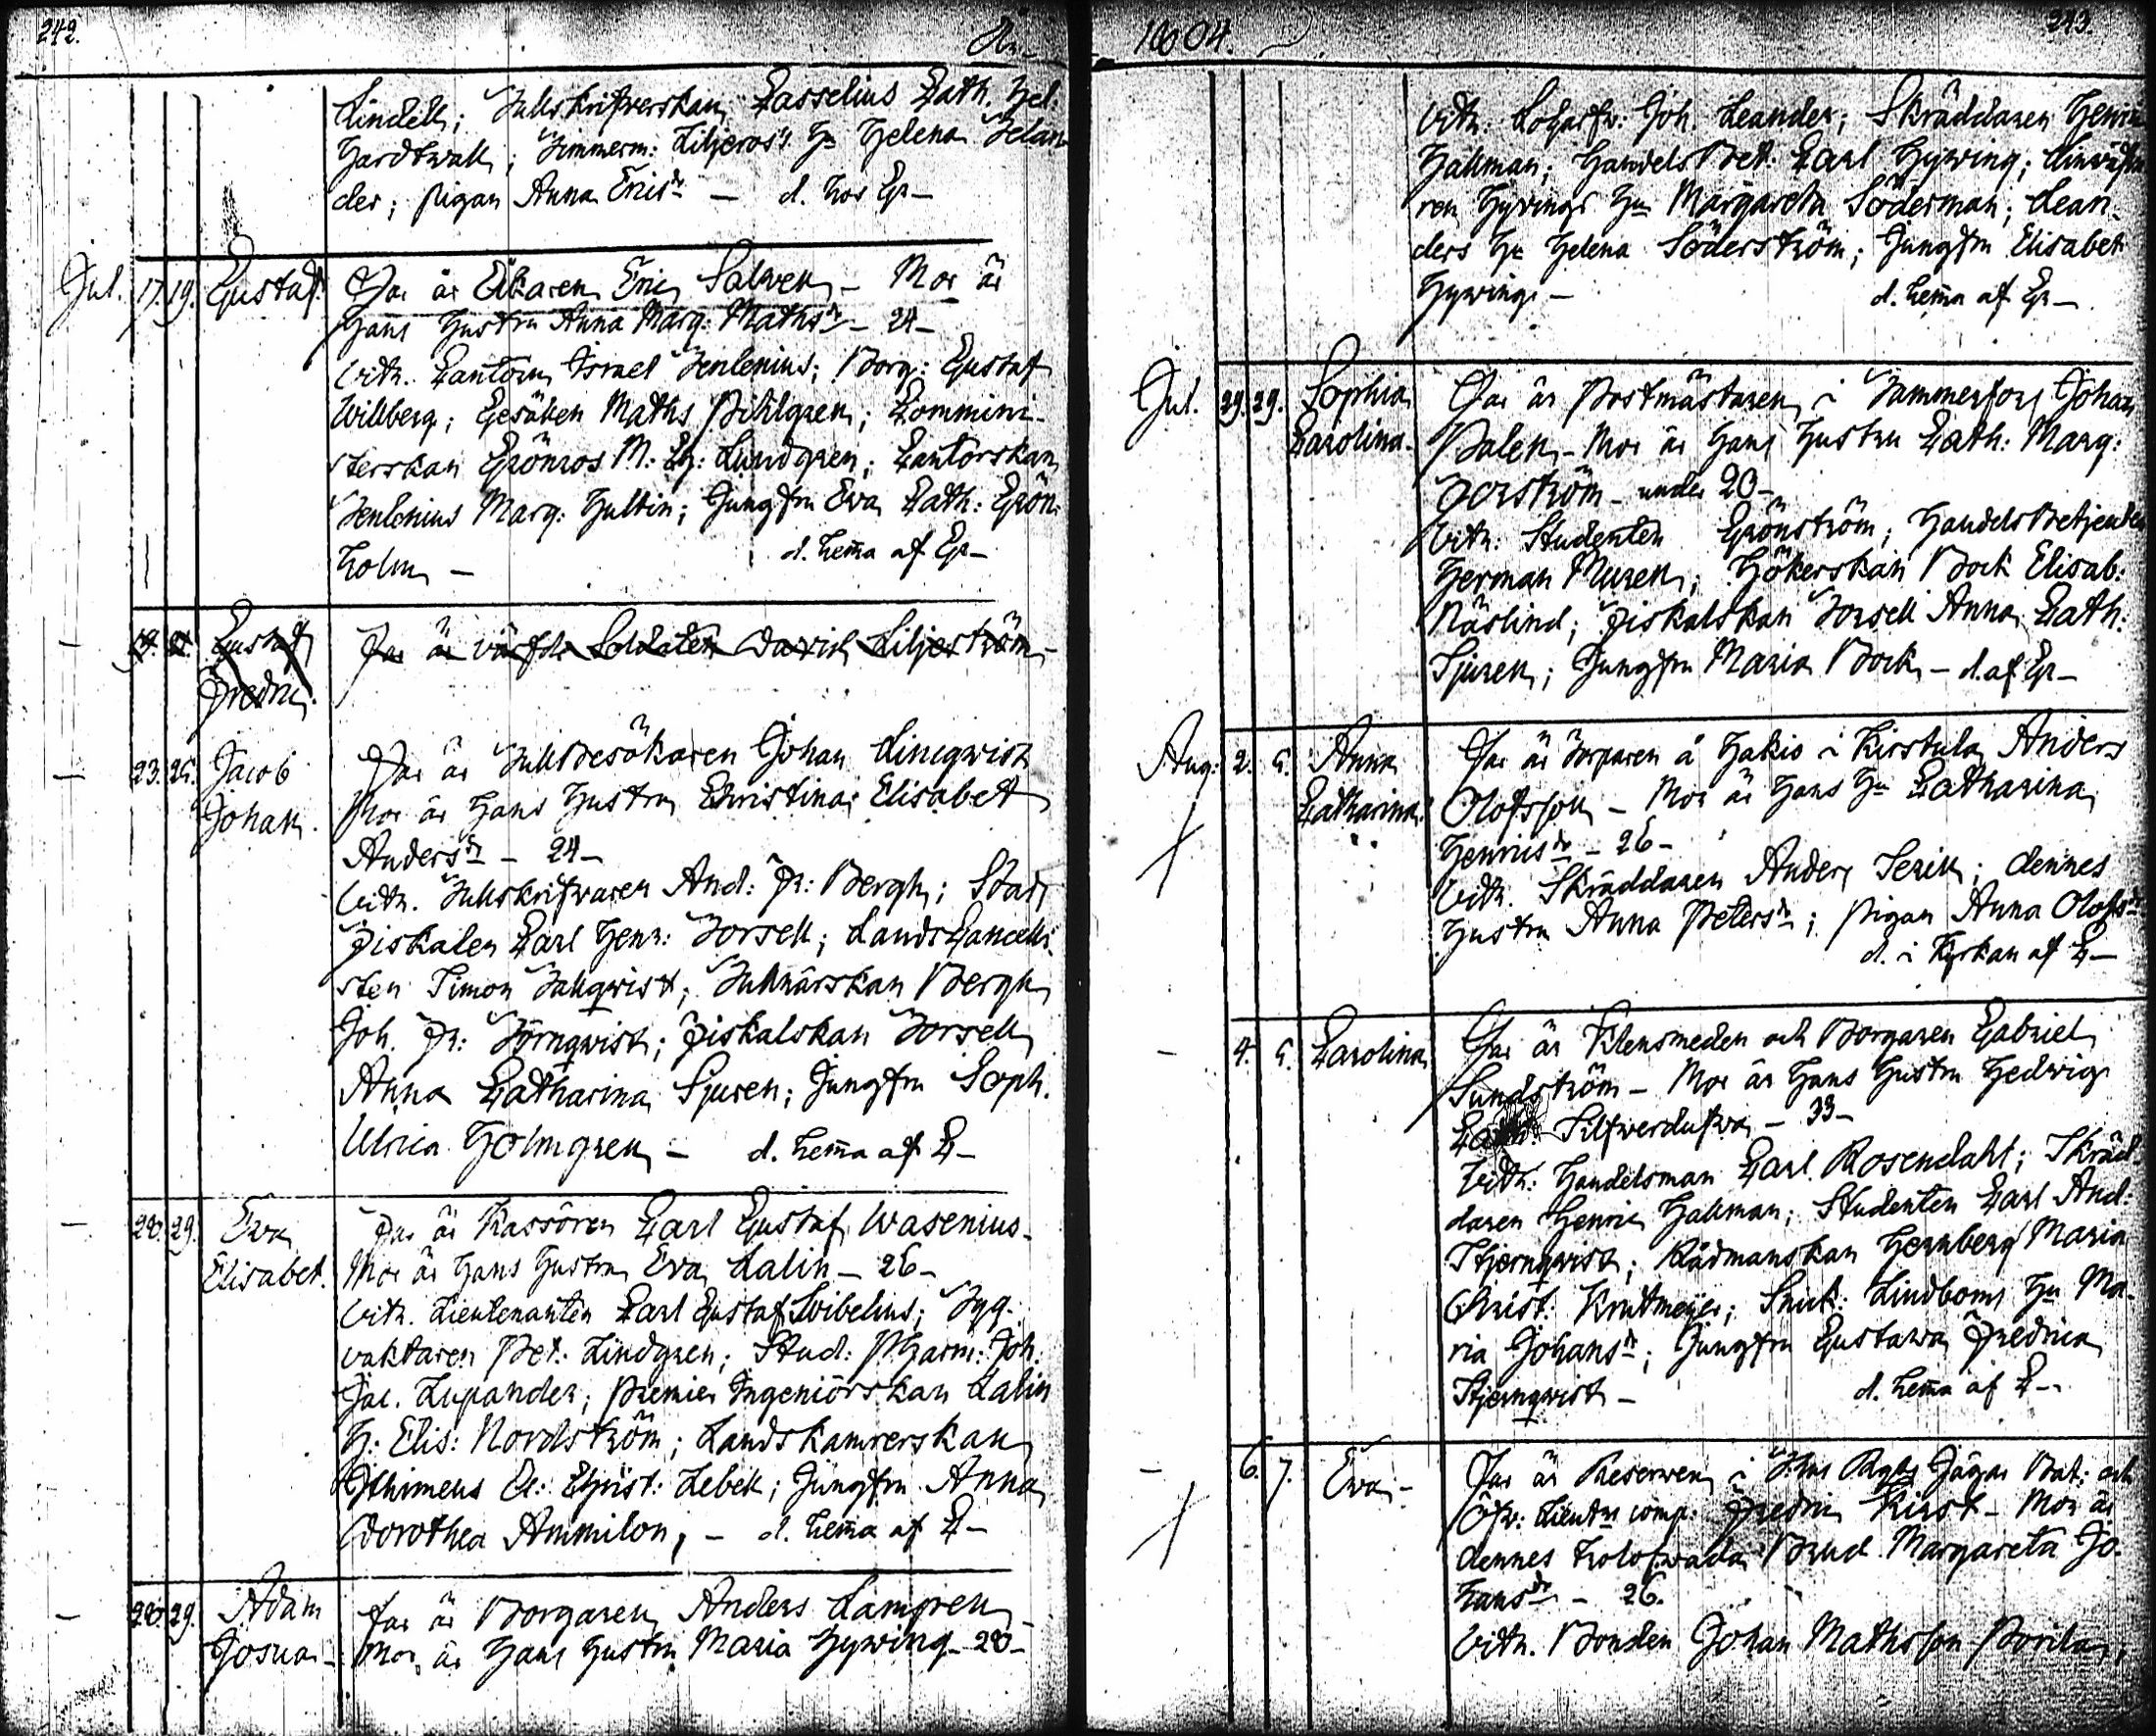 242.
År
Lindell; Tullskrifverskan Casselius Cath. Hel:
Hardtwall; Timmerm: Liljeros's Hu Helena Selan
der; pigan Anna Ericsdr — d. hos Gr—
Jul. 17. 19. Gustaf. Far är Åkaren Eric Salven — Mor är
hans hustru Anna Marg: Mathsdr — 24—
Vitn. Cantorn Israel Tenlenius; Borg: Gustaf
Willberg; Gesällen Maths Pihlgren; Commini-
sterskan Grönros M: Ch: Lundgren; Cantorskan
Tenlenius Marg: Hultin; Jungfru Eva Cath: Grön
holm — d. hema af Gr—
— Gustaf Fredric. Far är värfde Soldaten David Liljeström—
— 23. 25. Jacob Johan. Far är Tullbesökaren Johan Lineqvist
Mor är hans hustru Christina Elisabet
Andersdr — 24—
Vitn. Tullskrifvaren And: Fr: Bergh; Stads
Fiskalen Carl Henr: Forsell; LandsCancelli
sten Simon Tallqvist; Tullnärskan Bergh
Joh. Fr: Törnqvist; Fiskalskan Forsell
Anna Catharina Sjuren; Jungfru Soph.
Ulrica Holmgren — d. hema af C—
— 28. 29. Eva Elisabet. Far är Kassören Carl Gustaf Wasenius—
Mor är hans hustru Eva Lalin — 26—
Vitn. Lieutenanten Carl Gustaf Svibelius; Tyg-
vaktaren Pet. Lindgren; Stud: Pharm: Joh.
Jac. Lupander; Premier Ingeniörskan Lalin
H: Elis: Nordström; Landskamrerskan
Ithimeus El: Christ: Lebell; Jungfru Anna
Dorothea Ammilon; — d. hema af C—
— 28. 29. Adam Josua— Far är Borgaren Anders Lampren—
Mor är hans hustru Maria Hywing—28—
1804.
243.
Vitn: Lotsarfv: Joh. Leander; Skräddaren Henric
Hallman; HandelsBet: Carl Hywing; Linväfva
ren Hyvings Hu Margareta Söderman; Lean-
ders Hu Helena Söderström; Jungfru Elisabet
Hywing — d. hema af Gr—
Jul. 29. 29. Sophia Carolina. Far är Postmästaren i Tammerfors Johan
Palen — Mor är hans hustru Cath: Marg:
Forström — under 20—
Vitn: Studenten Grönström; HandelsBetjenten
Herman Muren; Hökerskan Bock Elisab:
Näslind; Fiskalskan Forsell Anna Cath:
Sjuren; Jungfru Maria Bock — d. af Gr—
Aug: 2. 5. Anna Catharina. Far är Torparen å Hakio i Kirstula Anders
Olofsson — Mor är hans Hu Catharina
Henricsdr — 26—
Vitn. Skräddaren Anders Serin; dennes
hustru Anna Petersdr; pigan Anna Olofsdr
d. i Kyrkan af C—
— 4. 5. Carolina Far är Klensmeden och Borgaren Gabriel
Sundström — Mor är hans hustru Hedwig
Silfwerdufva — 33—
Vitn: Handelsman Carl Rosendahl; Skräd-
daren Henric Hallman; Studenten Carl And:
Stjernqwist; Rådmanskan Hernberg Maria
Christ: Krutmeijer; Snick: Lindboms Hu Ma-
ria Johansdr; Jungfru Gustawa Fredrica
Stjernqwist — d. hema af C—
— 6. 7. Eva— Far är Reserven i Jägar Bat: och
Öfv: Lieutns comp: Fredric Kirst — Mor är
dennes trolofwada Brud Margareta Jo-
hansdr — 26.
Vitn. Bonden Johan Mathsson Porila,